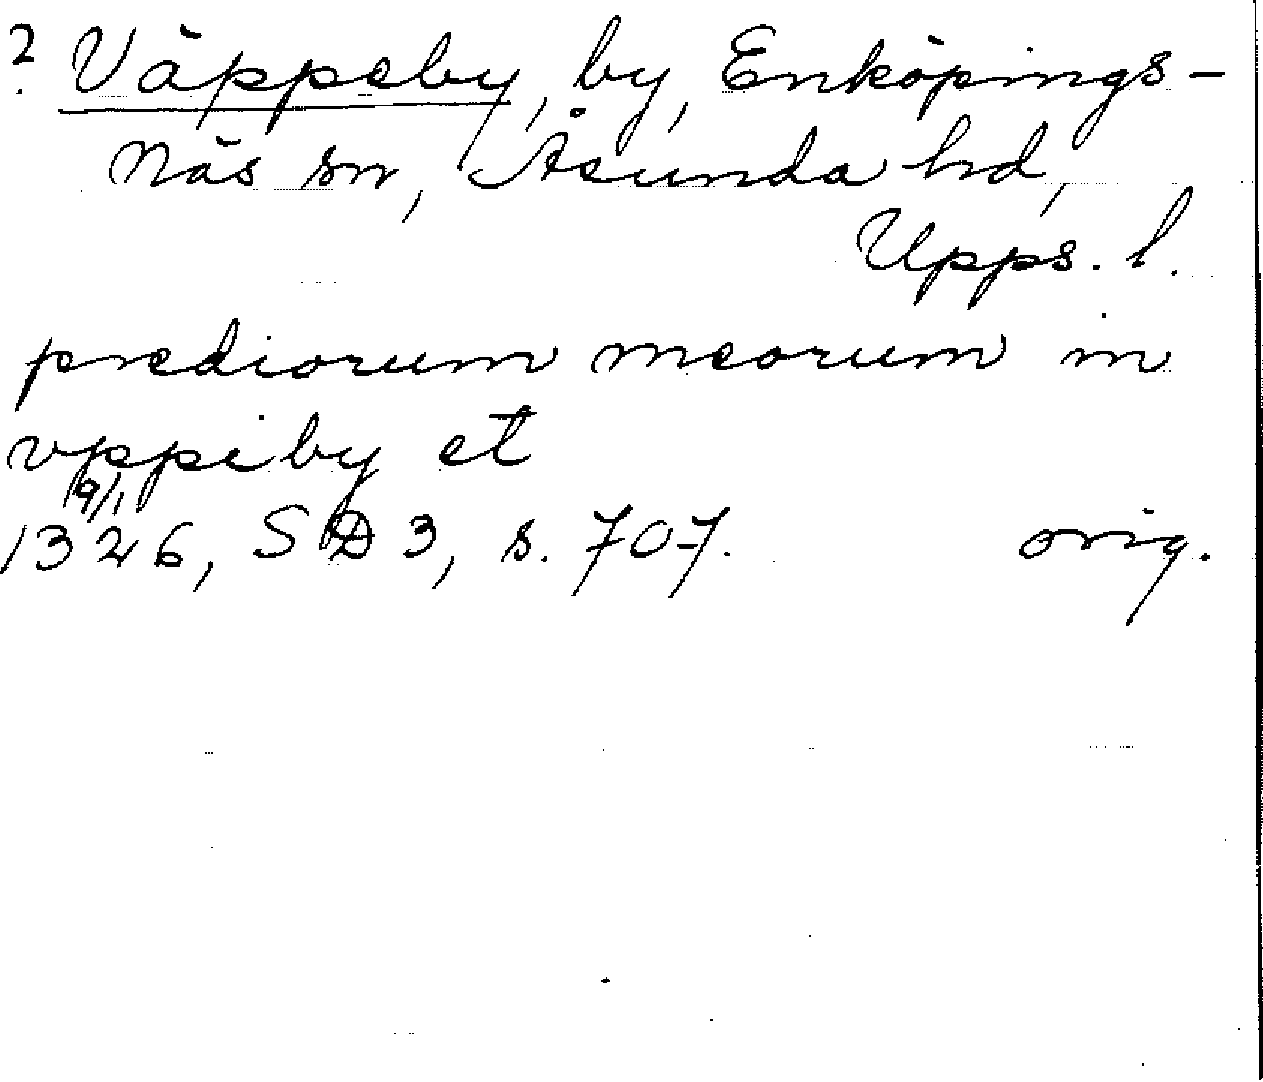 ? Väppeby, by, Enköpings-
Näs sn, Åsunda hd,
Upps. l.
prediorum meorum in
vppiby et
9/1
1326, SD 3, s. 707. orig.